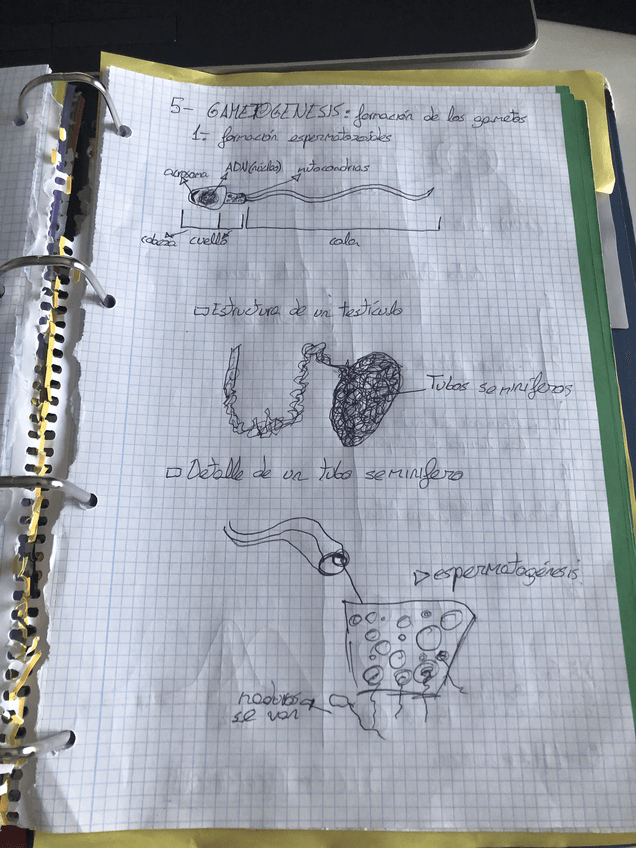 5- GAMETOGENESIS: formación de los gametos
1= formación espermatozoides
acrosoma ADN(núcleo) mitocondrias
cabeza cuello cola
Estructura de un testículo
Tubos seminíferos
Detalle de un tubo seminífero
espermatogénesis
maduros
se van